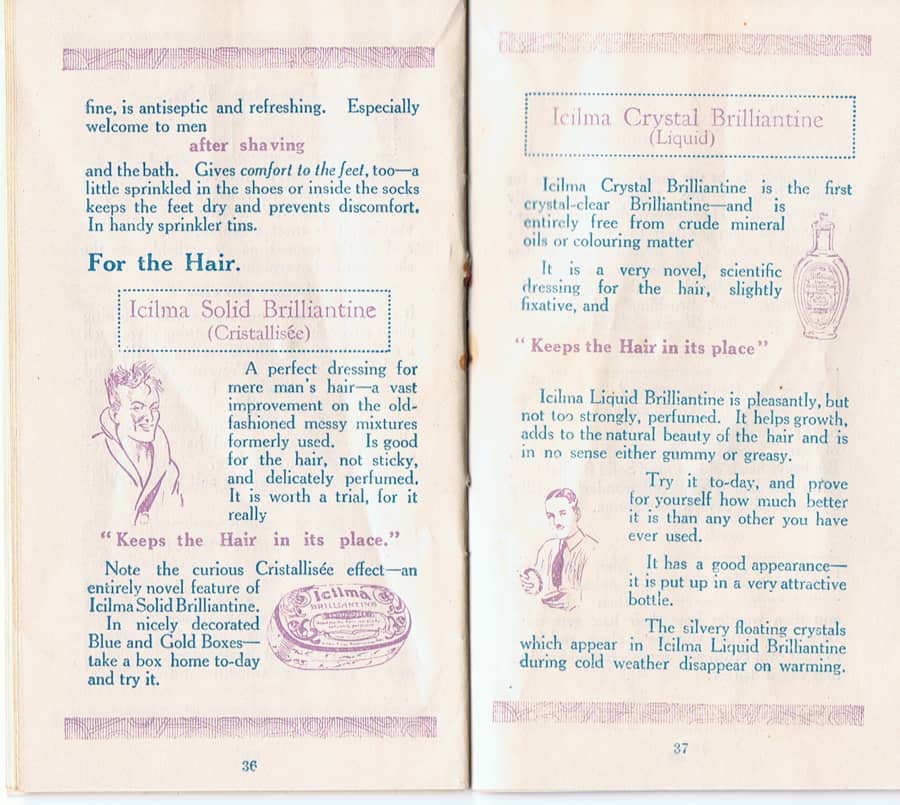 fine, is antiseptic and refreshing. Especially
welcome to men
after shaving
and the bath. Gives comfort to the feet, too—a
little sprinkled in the shoes or inside the socks
keeps the feet dry and prevents discomfort.
In handy sprinkler tins.
For the Hair.
Icilma Solid Brilliantine
(Cristallisée)
A perfect dressing for
mere man's hair—a vast
improvement on the old-
fashioned messy mixtures
formerly used. Is good
for the hair, not sticky,
and delicately perfumed.
It is worth a trial, for it
really
"Keeps the Hair in its place."
Note the curious Cristallisée effect—an
entirely novel feature of
Icilma Solid Brilliantine.
In nicely decorated
Blue and Gold Boxes—
take a box home to-day
and try it.
Icilma
BRILLIANTINE
36
Icilma Crystal Brilliantine
(Liquid)
Icilma Crystal Brilliantine is the first
crystal-clear Brilliantine—and is
entirely free from crude mineral
oils or colouring matter
It is a very novel, scientific
dressing for the hair, slightly
fixative, and
"Keeps the Hair in its place"
Icilma Liquid Brilliantine is pleasantly, but
not too strongly, perfumed. It helps growth,
adds to the natural beauty of the hair and is
in no sense either gummy or greasy.
Try it to-day, and prove
for yourself how much better
it is than any other you have
ever used.
It has a good appearance—
it is put up in a very attractive
bottle.
The silvery floating crystals
which appear in Icilma Liquid Brilliantine
during cold weather disappear on warming.
37